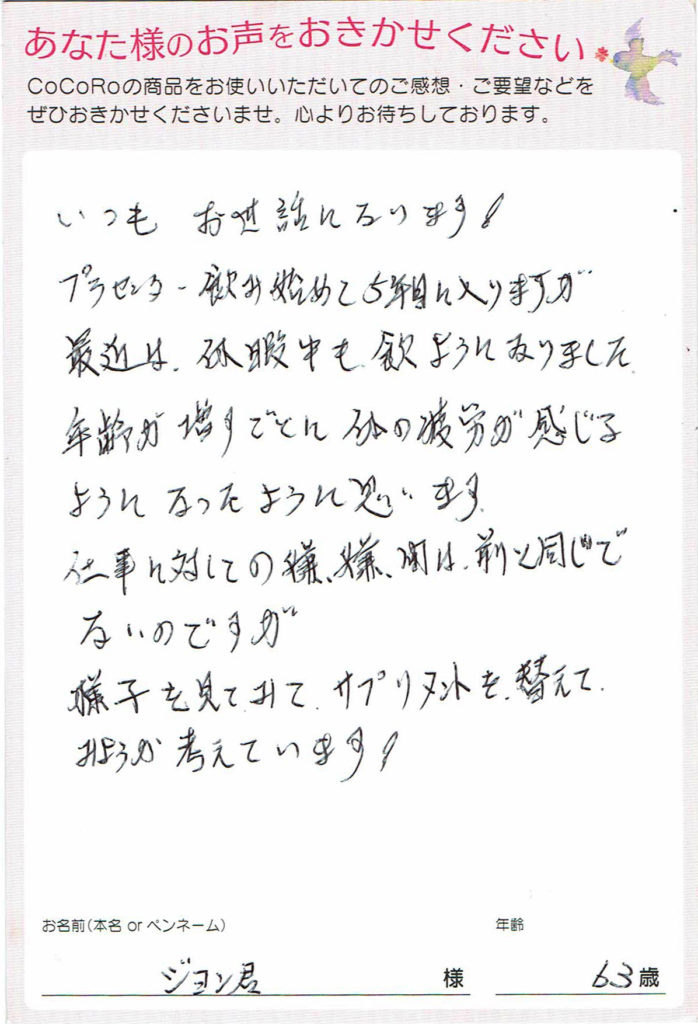 あなた様のお声をおきかせください
CoCoRoの商品をお使いいただいてのご感想・ご要望などを
ぜひおきかせくださいませ。心よりお待ちしております。
いつも お世話になります!
プラセンター飲み始めて5年目に入りますが
最近は、休暇中も、飲ようになりました
年齢が増すごとに 体の疲労が感じる
ようになったように思います
仕事に対しての 間は、前と同じで
ないのですが
様子を見てみて、サプリメントを、替えて、
みようか考えています!
お名前(本名 or ペンネーム)
年齢
ジョン君 様
63歳